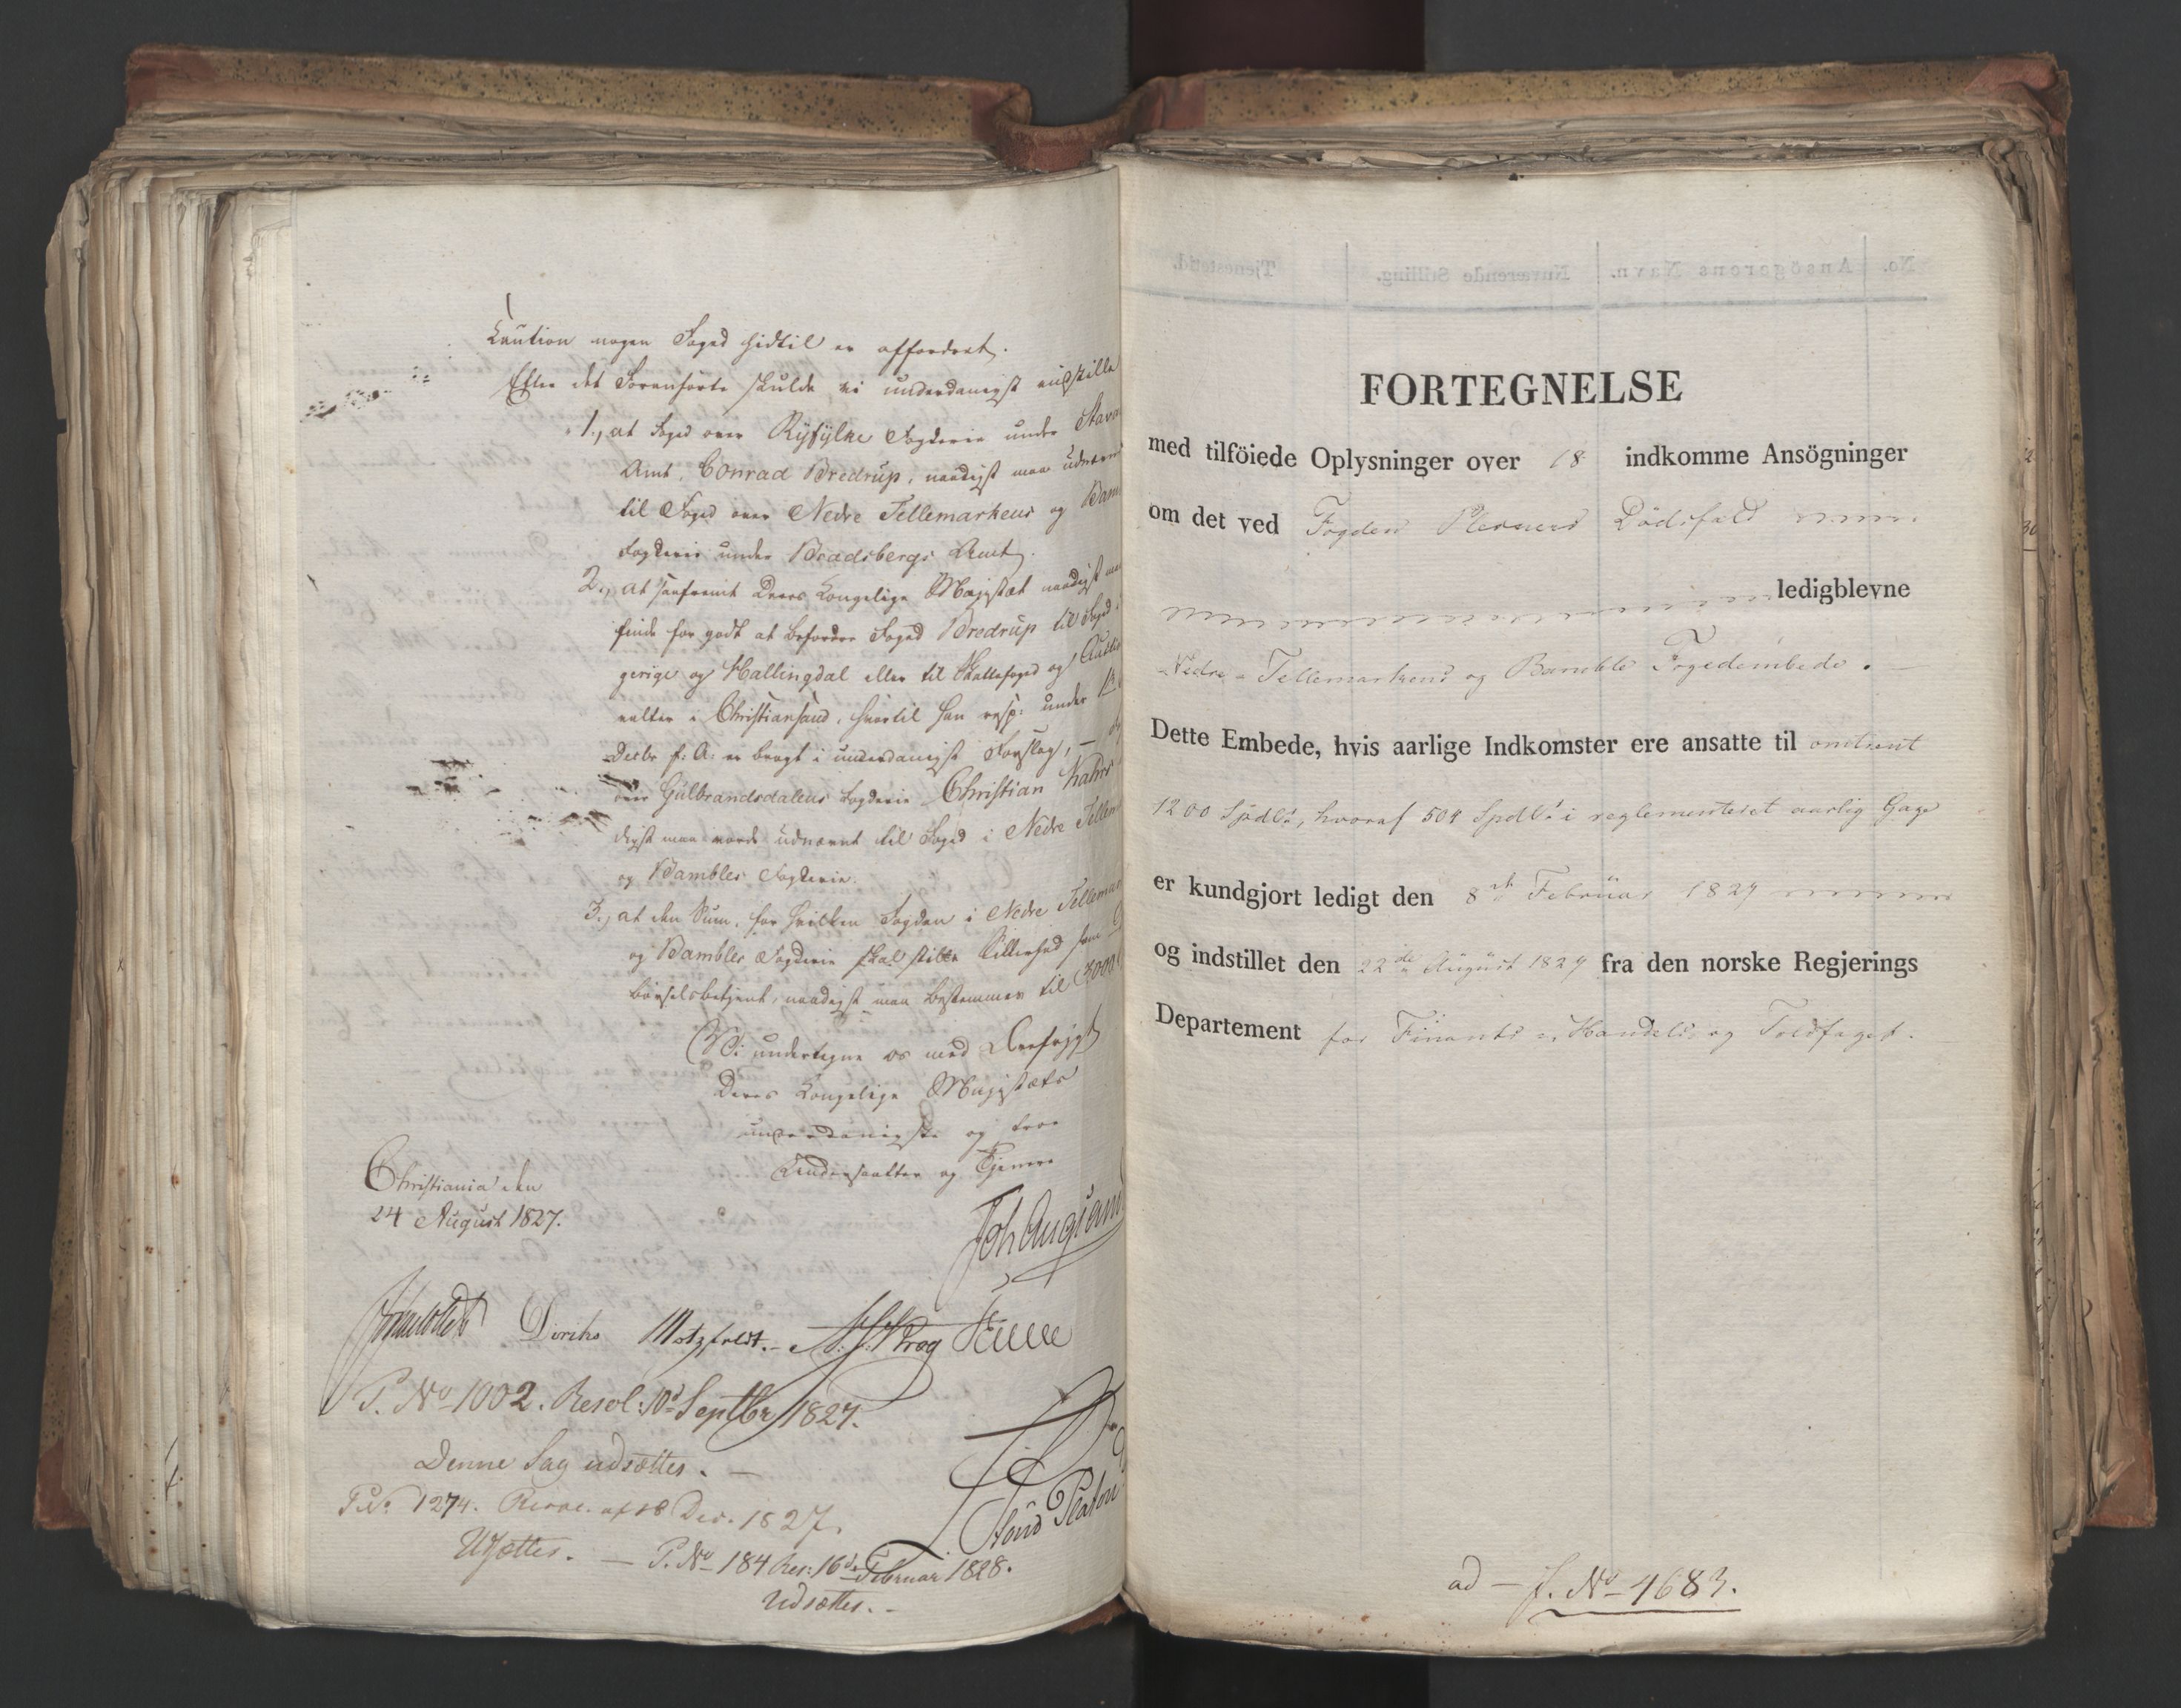 Caution nogen Foged hidtil er affordret.
Efter det Foranførte skulde vi underdanigst indstille
1., at Foged over Ryfylke Fogderie under Stava
Amt, Conrad Bredrup, naadigst maa udnævn
til Foged over Nedre Tellemarkens og Bam
Fogderie under Bradsbergs Amt.
2., at saafremt Deres Kongelige Majestæt naadigst
finde for godt at befordre Foged Bredrup til Foged
gerige og Hallingdal eller til Skattefoged og Auctio
nalter i Christiansand, hvortil han resp: under
Decbr f: A: er bragt i underdanigst Forslag, —
over Gulbrandsdalens Fogderie Christian
digst maa vorde udnævnt til Foged i Nedre Tellem
og Bambles Fogderie.
3., at den Sum, for hvilken Fogden i Nedre Tellemar
og Bambles Fogderie skal stille Sikkerhed som
børselsbetjent, naadigst maa bestemmes til 3000
Vi undertegne os med Ærefrygt
Deres Kongelige Majestæts
underdanigste og troe
Undersaatter og Tjenere
Christiania den
24 August 1827.
Diriks Motzfeldt.
P. No 1002. Resol: 10d Septbr 1827.
Denne Sag udsættes. —
P. No 1274. Resol. af 18 Dec. 1827.
Udsættes. — P. No 184 Res: 16de Februar 1828.
Udsættes. —
No. Ansögerens Navn. Nuværende Stilling. Tjenestetid.
FORTEGNELSE
med tilföiede Oplysninger over 18 indkomne Ansögninger
om det ved Fogden Plesners Dödsfald
ledigblevne
Nedre-Tellemarkens og Bamble Fogedembede. —
Dette Embede, hvis aarlige Indkomster ere ansatte til omtrent
1200 Spdlr, hvoraf 504 Spdlr i reglementeret aarlig Gage
er kundgjort ledigt den 8de Februar 1827
og indstillet den 22de August 1827 fra den norske Regjerings
Departement for Finants-, Handels- og Toldfaget.
ad — J. No 1683.